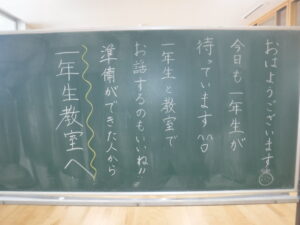 おはようございます
今日も一年生が
待っています^^
一年生と教室で
お話するのもいいね!!
準備ができた人から
一年生教室へ